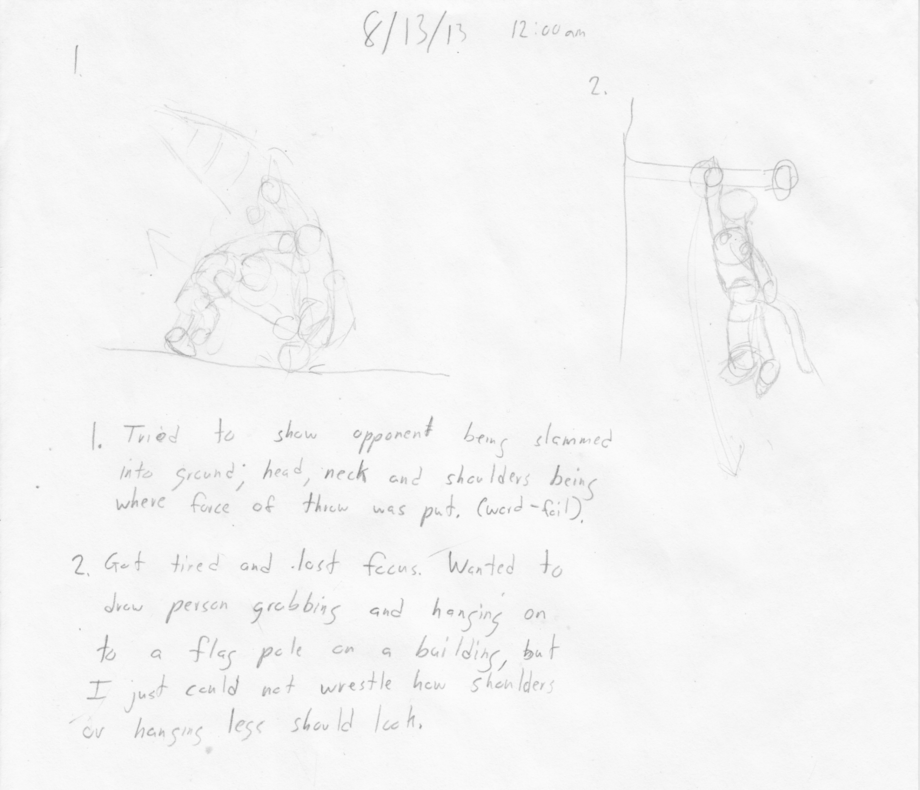 8/13/13 12:00am
1.
2.
1. Tried to show opponent being slammed
into ground; head, neck and shoulders being
where force of throw was put. (word-fail).
2. Got tired and lost focus. Wanted to
draw person grabbing and hanging on
to a flag pole on a building, but
I just could not wrestle how shoulders
or hanging legs should look.